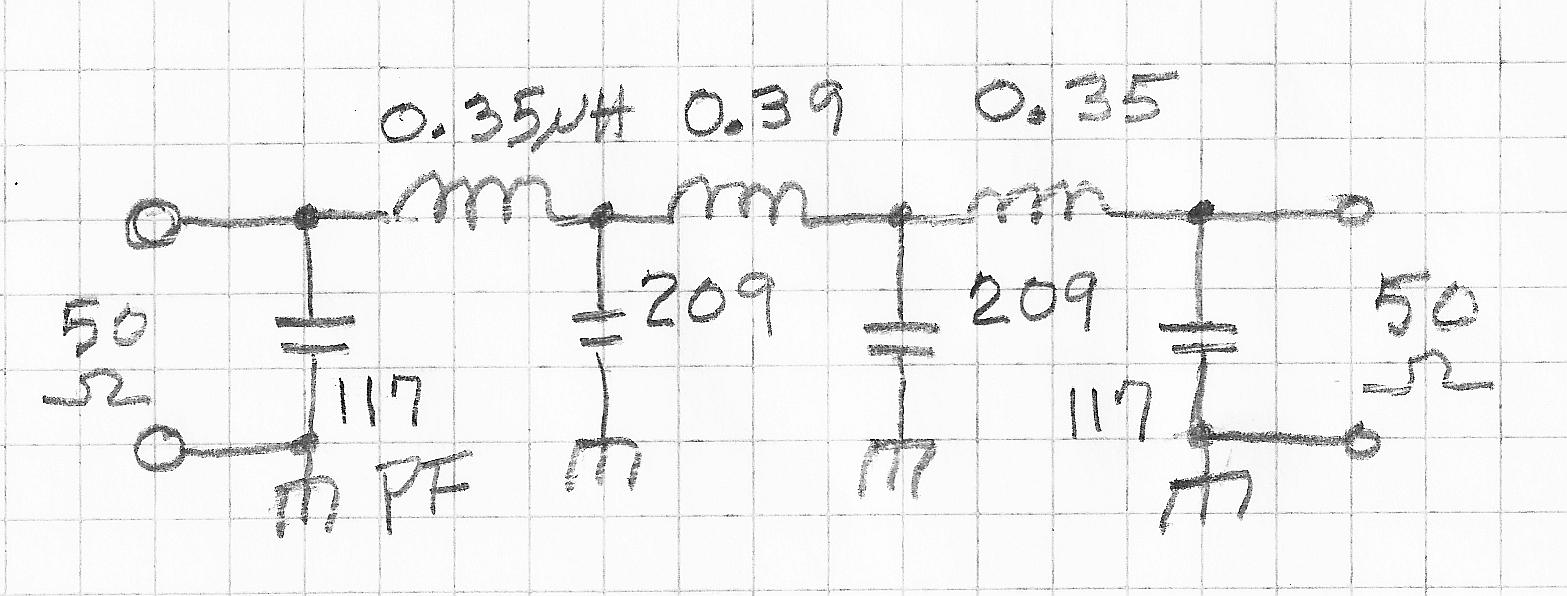 0.35μH 0.39 0.35
50 Ω 209 209 50 Ω
117 PF 117